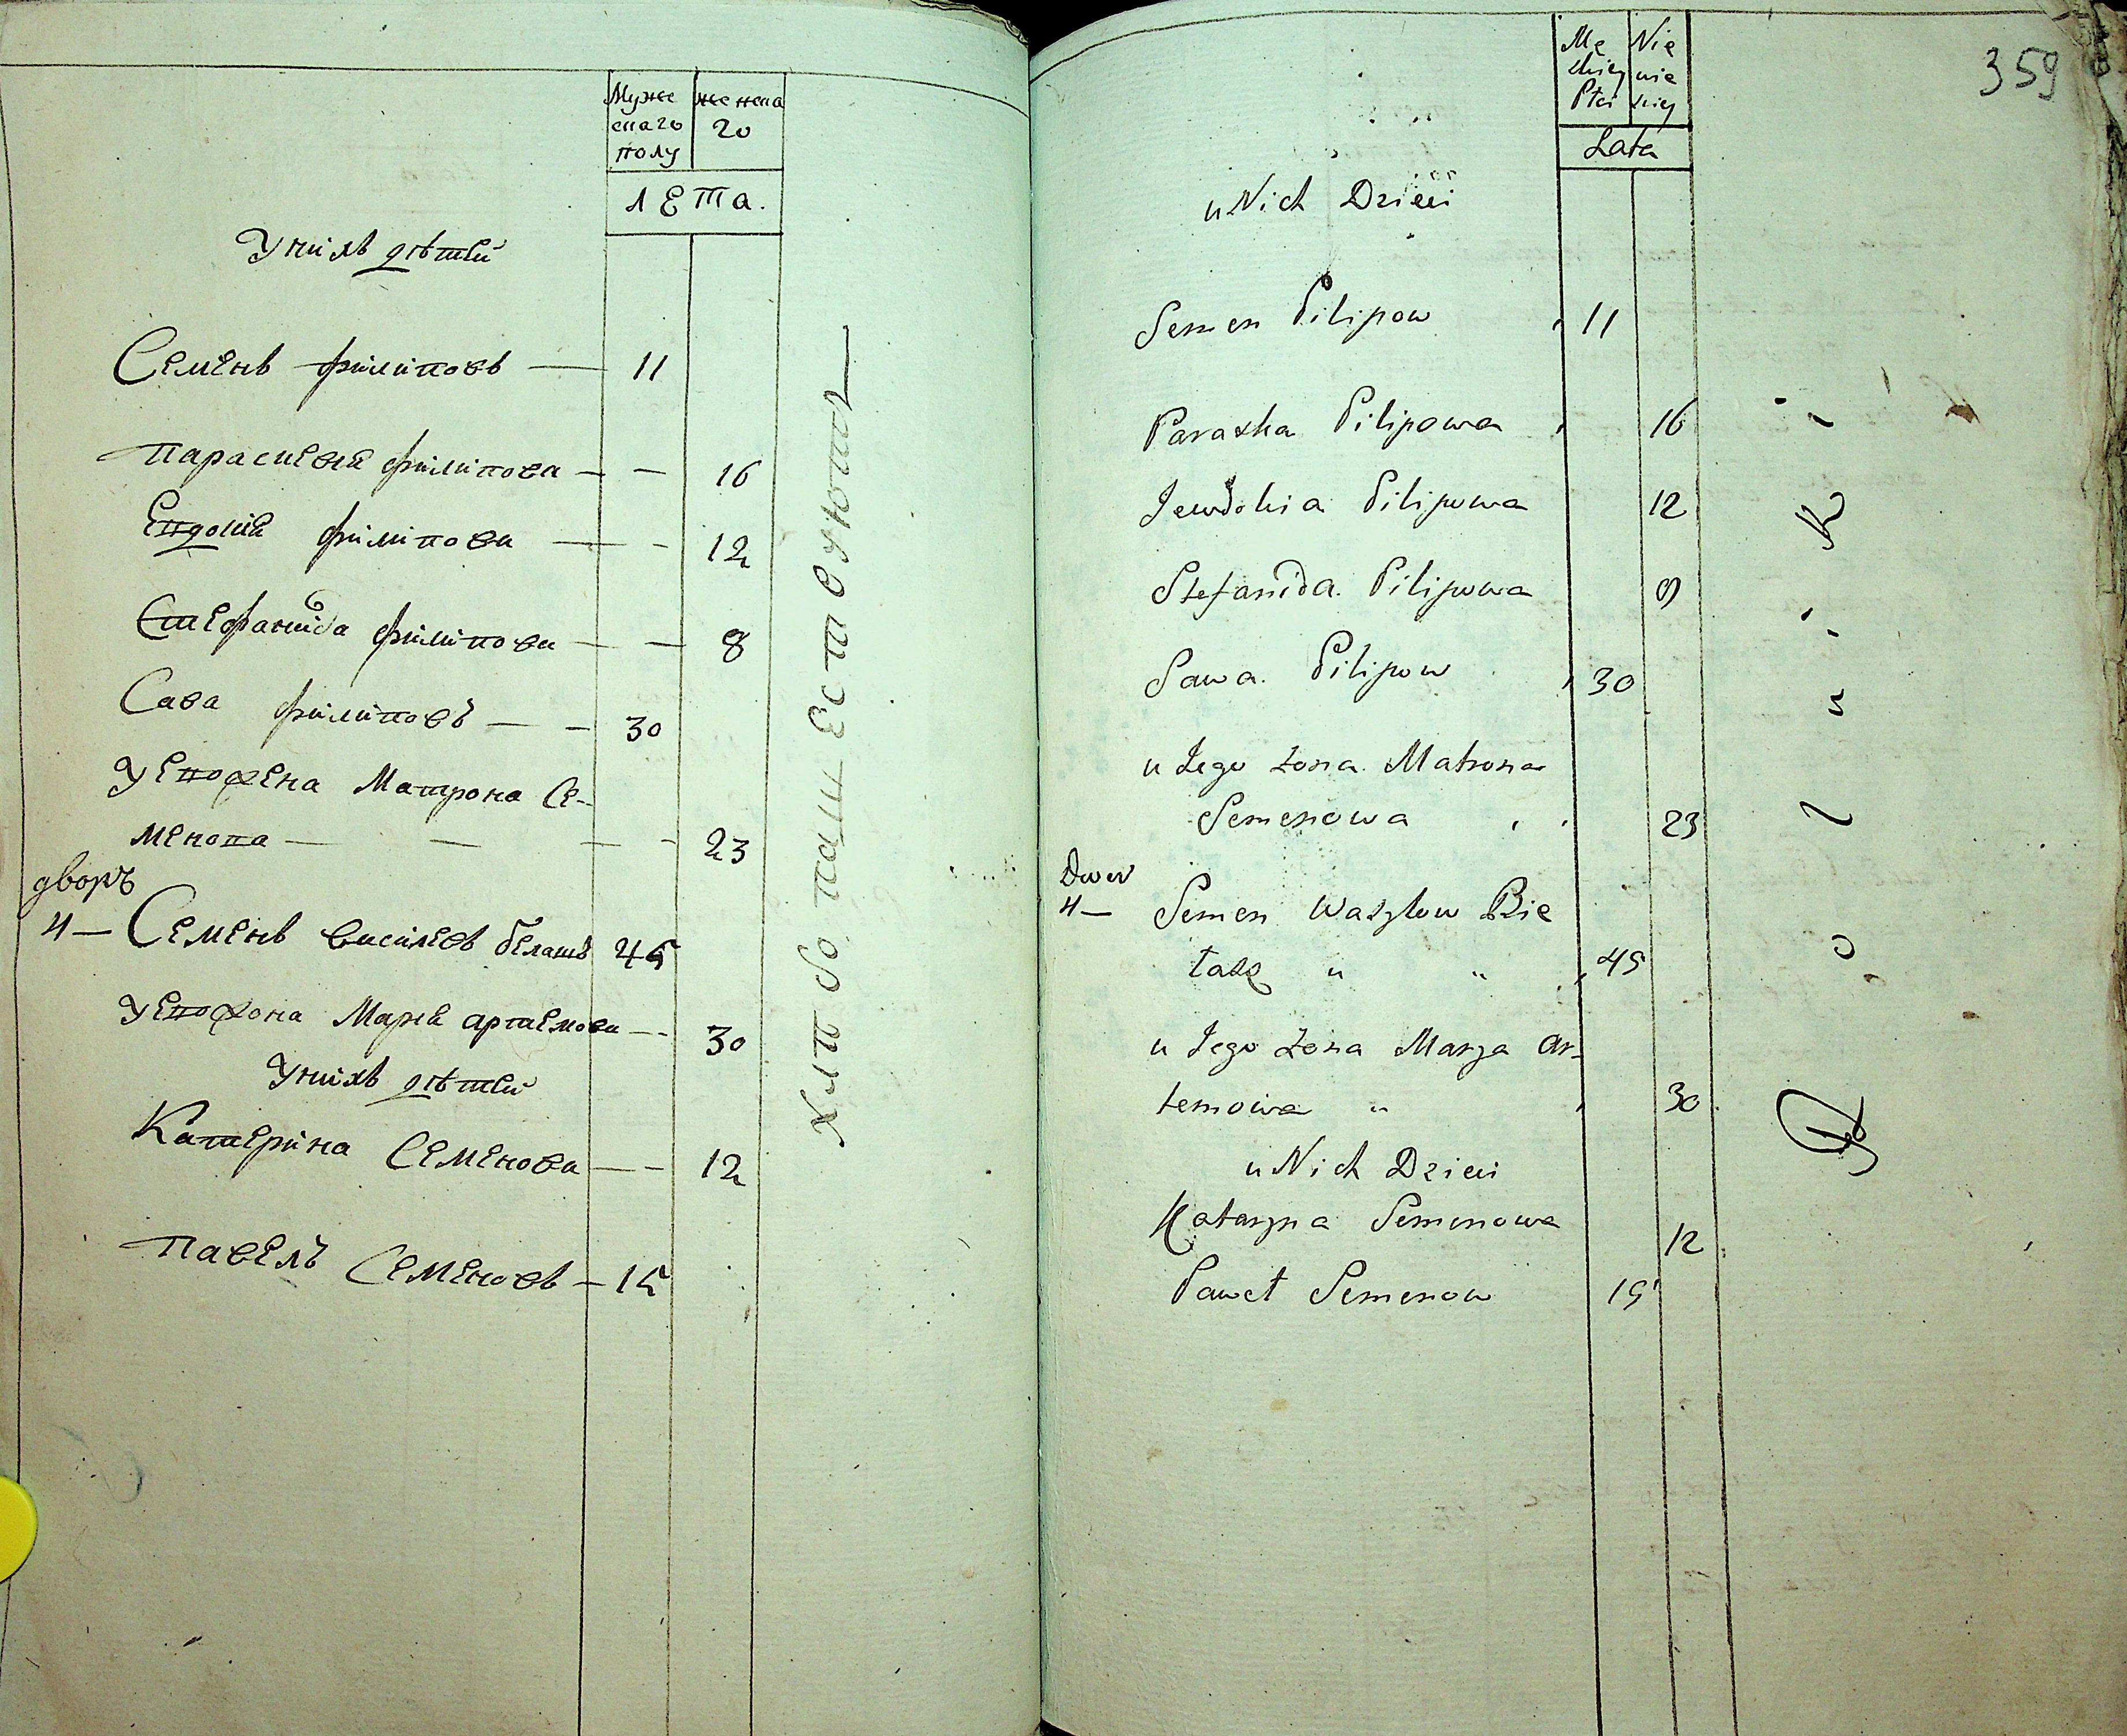 Муже
скаго
полу
женска
го
Лета.
У нихъ дѣтей
Семенъ филиповъ — 11
Парасковия филипова — — 16
Евдокия филипова — — 12
Стефанида филипова — — 8
Сава филиповъ — — 30
У его жена Матрона Се-
менова — — — — 23
дворъ
4 — Семенъ Василевъ белашъ 45
У его жона Мария артемова — — 30
У нихъ дѣтей
Катерина Семенова — — 12
Павелъ Семеновъ — 15
359
Mę
skiey
Płci
Nie
wie
skiey
Lata
u Nich Dzieci
Semen Pilipow 11
Paraska Pilipowa 16
Jewdokia Pilipowa 12
Stefanida Pilipowa 8
Sawa Pilipow 30
u Jego żona Matrona
Semenowa 23
Dwor
4 — Semen Wasylow Bie
łasz " " 45
u Jego żona Marya Ar-
temowa " 30
u Nich Dzieci
Kataryna Semenowa 12
Paweł Semenow 15